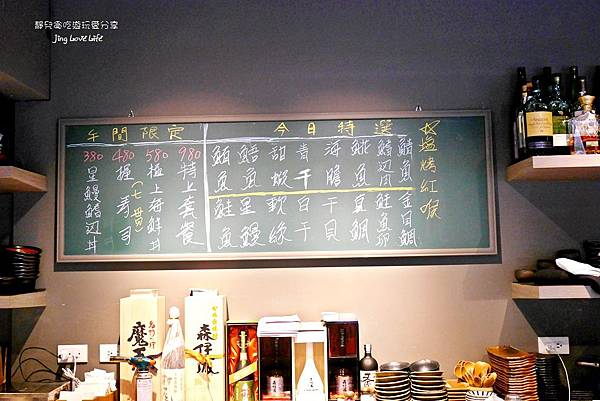 靜兒貪吃遊玩愛分享
Jing Love Life
午間限定
980 特上套餐
580 極上海鮮丼
480 握壽司(七貫)
380 星鰻鮭辺丼
今日特選
鹽烤紅喉
鯖魚
金目鯛
鮭魚卵
真鯛
海膽
干貝
青干
白干
甜蝦
軟絲
星鰻
鮪魚
鮭魚
魔王
森伊蔵